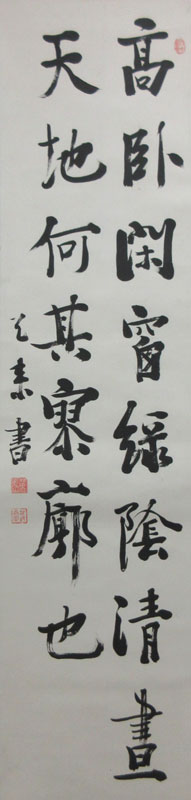 高卧閑窗綠陰清晝
天地何其寥廓也
素書